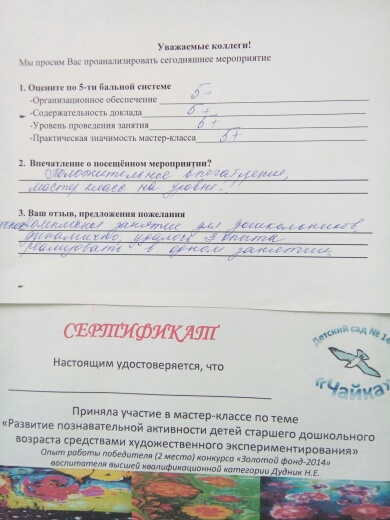 Уважаемые коллеги!
Мы просим Вас проанализировать сегодняшнее мероприятие
1. Оцените по 5-ти бальной системе
-Организационное обеспечение 5+
-Содержательность доклада 5+
-Уровень проведения занятия 5+
-Практическая значимость мастер-класса 5+
2. Впечатление о посещённом мероприятии?
Положительное впечатление,
мастер класс на уровне!
3. Ваш отзыв, предложения пожелания
занятие для дошкольников
Динамично, 3 опыта
в одном занятии.
СЕРТИФИКАТ
Детский сад № 14
"Чайка"
Настоящим удостоверяется, что
Приняла участие в мастер-классе по теме
«Развитие познавательной активности детей старшего дошкольного
возраста средствами художественного экспериментирования»
Опыт работы победителя (2 место) конкурса «Золотой фонд-2014»
воспитателя высшей квалификационной категории Дудник Н.Е.